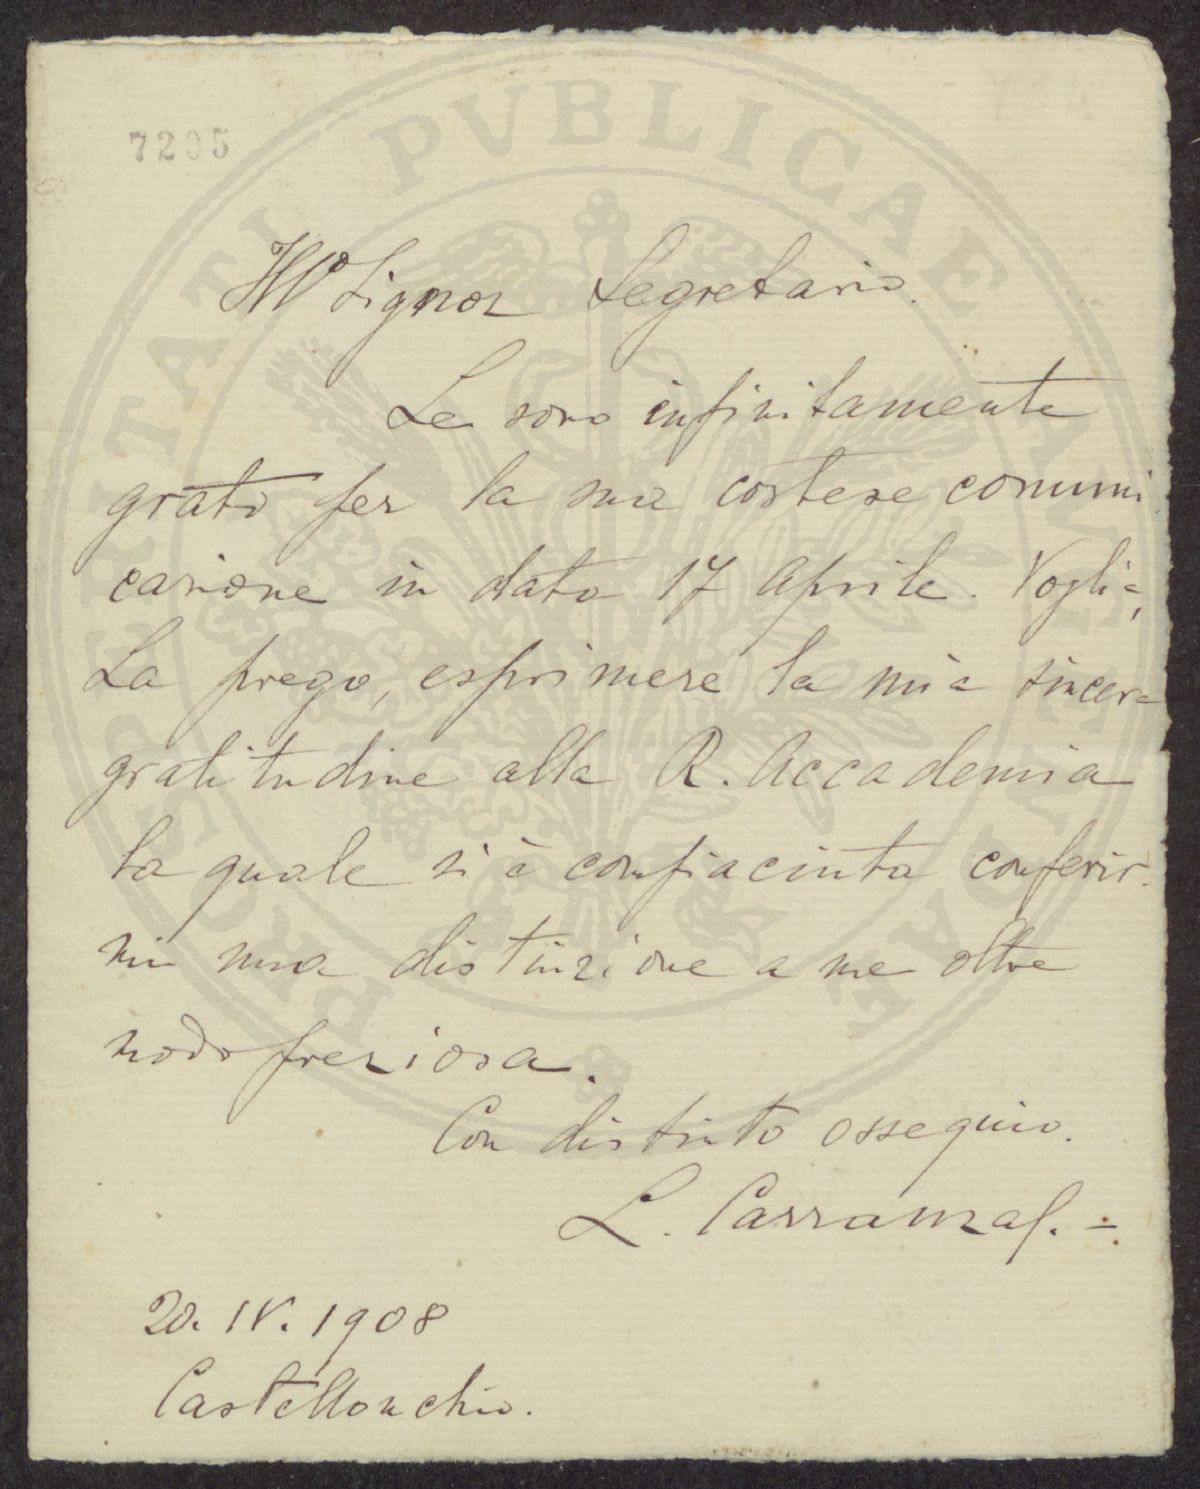 7205
Ill.º Signor Segretario.
Le sono infinitamente
grato per la sua cortese comuni
cazione in data 17 Aprile. Voglia,
La prego, esprimere la mia sincera
gratitudine alla R. Accademia
la quale si è compiaciuta conferir-
mi una distinzione a me oltre
modo preziosa.
Con distinto ossequio.
L.
20. IV. 1908
Castellonchio.
PROSPERITATI PVBLICAE AVGENDAE